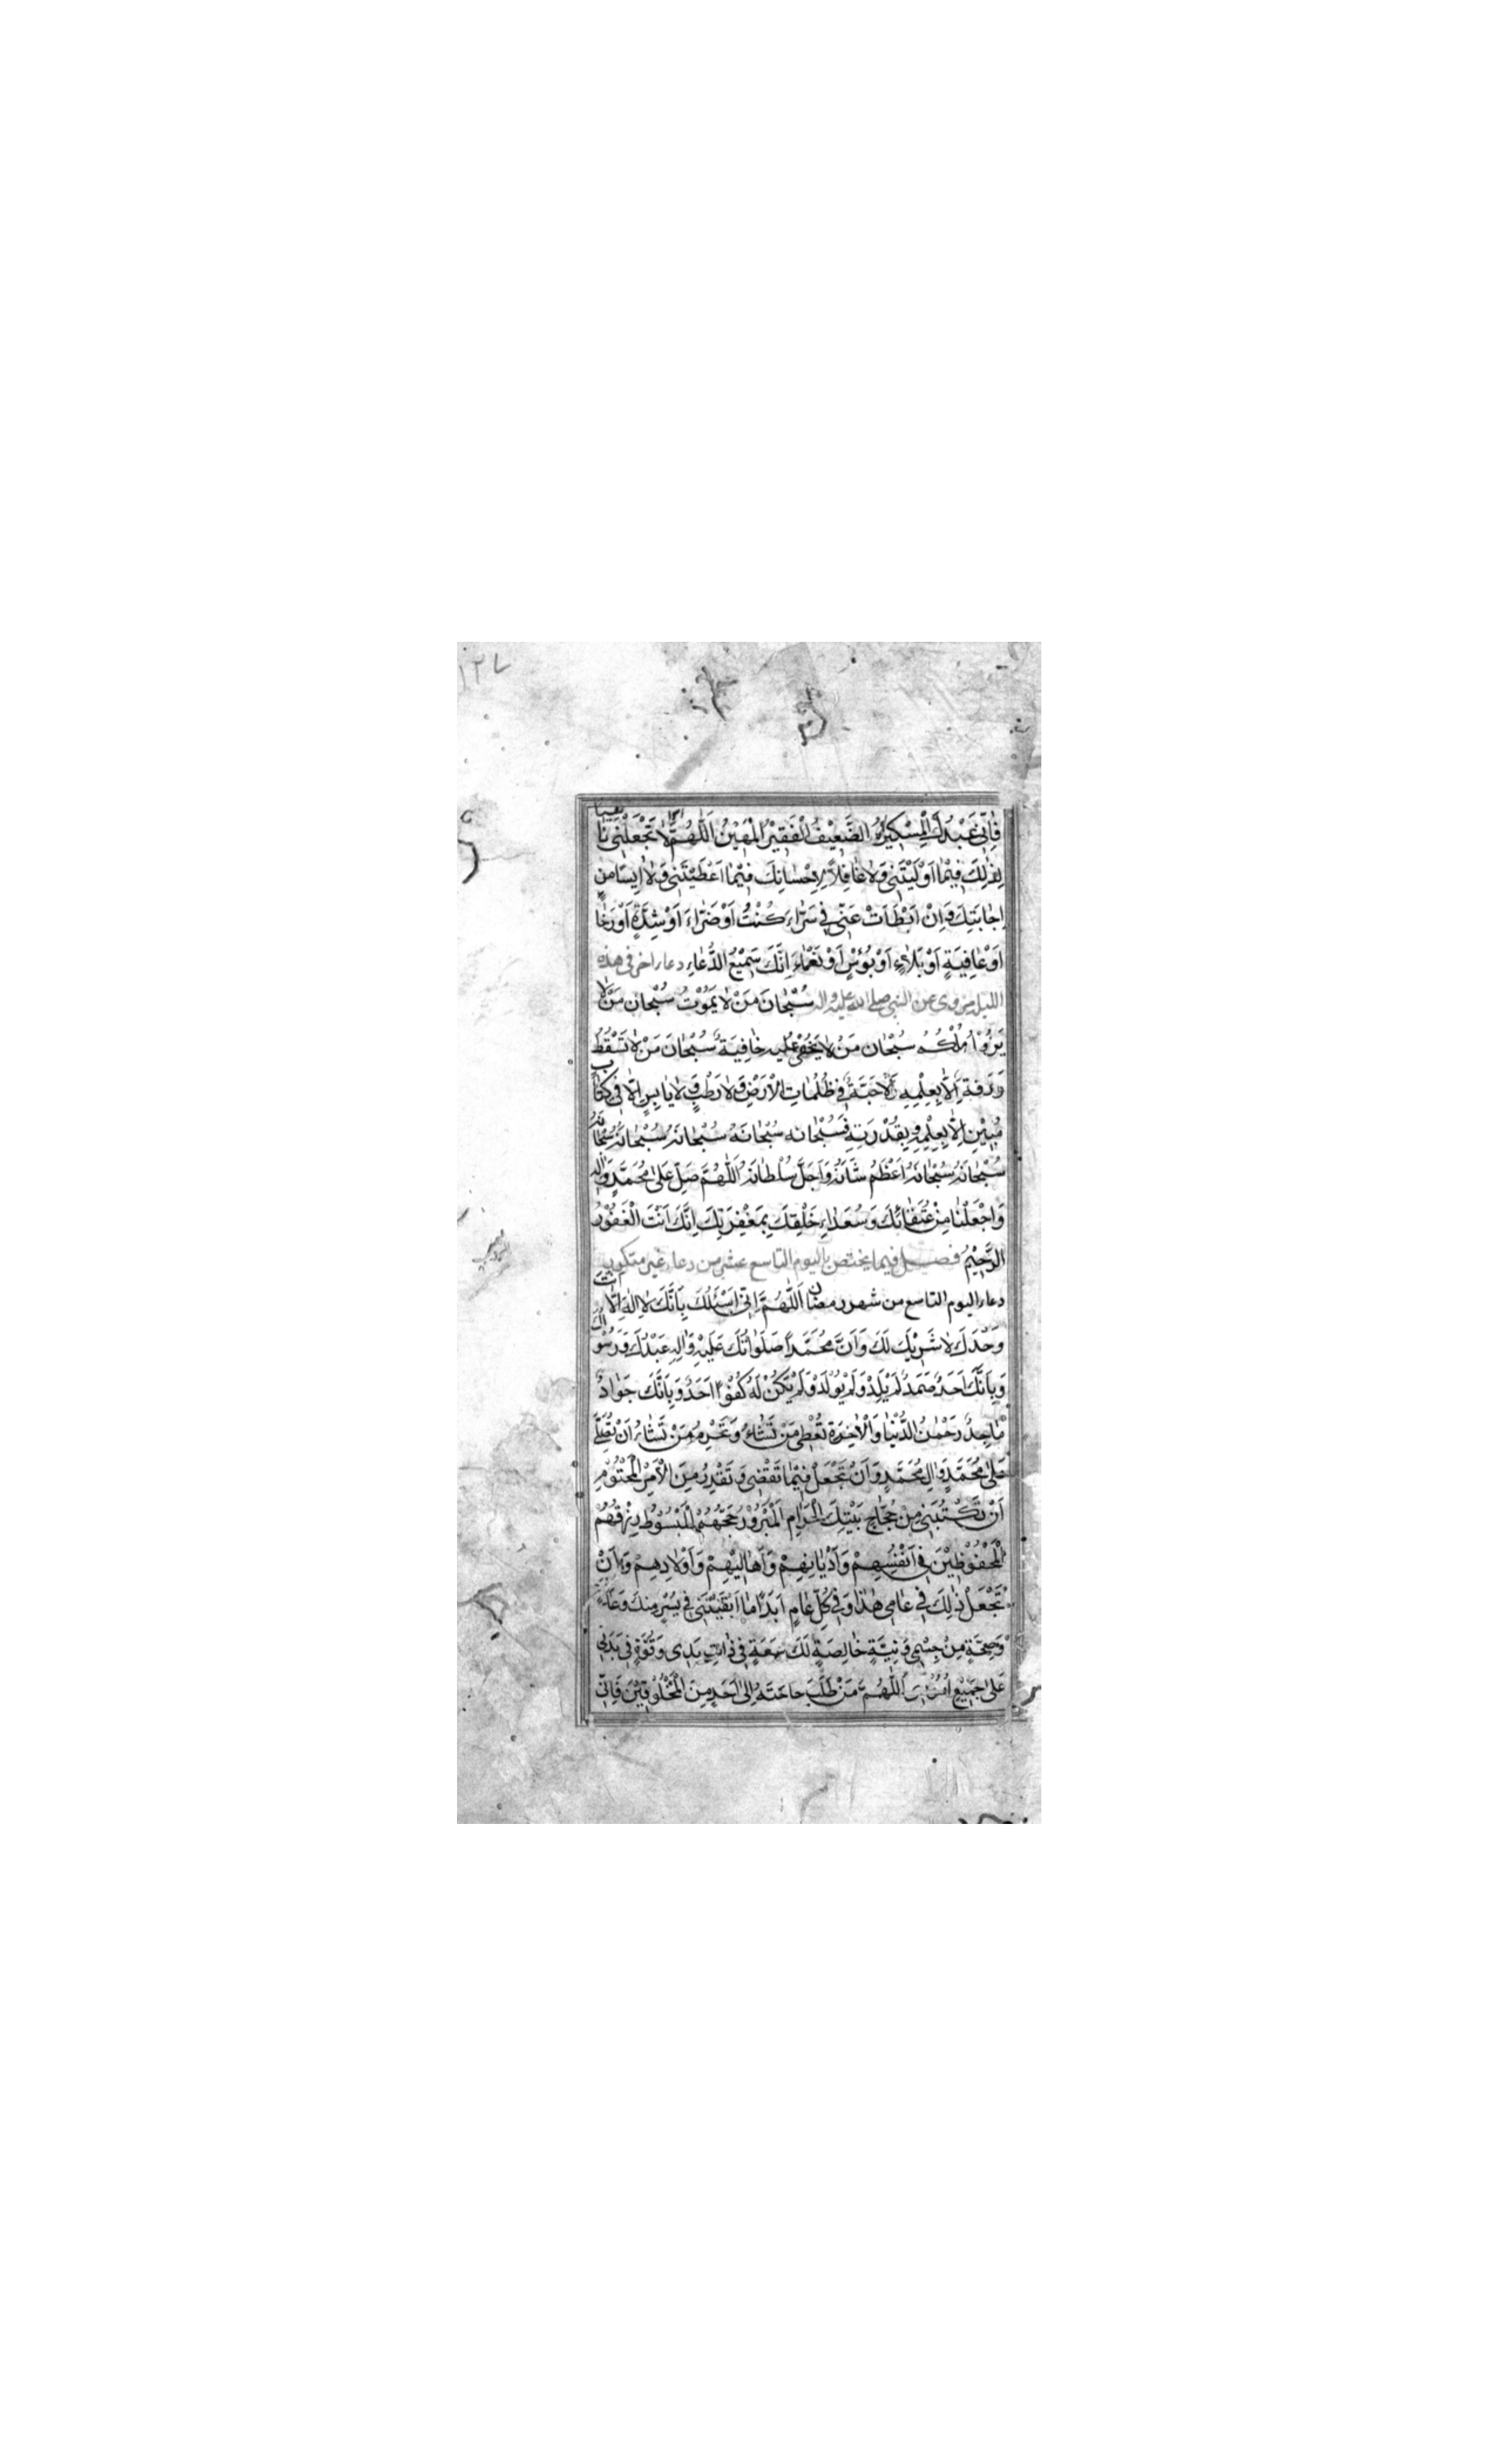 ١٢٧
فَاِنّى عَبْدُكَ الْمِسْكِيْنُ الضَّعِيْفُ الْفَقِيْرُ الْمَهِيْنُ اَللّٰهُمَّ لا تَجْعَلْنى ناسِيًا
لِذِكْرِكَ فِيْما اَوْلَيْتَنى وَلا غافِلاً لِاِحْسانِكَ فِيْما اَعْطَيْتَنى وَلا ايِسًا مِنْ
اِجابَتِكَ وَاِنْ اَبْطَاَتْ عَنّى فى سَرّاءَ كُنْتُ اَوْ ضَرّاءَ اَوْ شِدَّةٍ اَوْ رَخاءٍ
اَوْ عافِيَةٍ اَوْ بَلاءٍ اَوْ بُؤْسٍ اَوْ نَعْماءَ اِنَّكَ سَمِيْعُ الدُّعاءِ دعاء اخر فى هذه
الليلة مروى عن النبى صلى الله عليه واله سُبْحانَ مَنْ لا يَمُوْتُ سُبْحانَ مَنْ لا
يَزُوْلُ مُلْكُهُ سُبْحانَ مَنْ لا يَخْفى عَلَيْهِ خافِيَةٌ سُبْحانَ مَنْ لا تَسْقُطُ
وَرَقَةٌ اِلّا بِعِلْمِهِ وَلا حَبَّةٌ فى ظُلُماتِ الْاَرْضِ وَلا رَطْبٍ وَلا يابِسٍ اِلّا فى كِتابٍ
مُبِيْنٍ اِلّا بِعِلْمِهِ وَبِقُدْرَتِهِ فَسُبْحانَهُ سُبْحانَهُ سُبْحانَهُ سُبْحانَهُ سُبْحانَهُ
سُبْحانَهُ سُبْحانَهُ ما اَعْظَمَ شَاْنَهُ وَاَجَلَّ سُلْطانَهُ اَللّٰهُمَّ صَلِّ عَلى مُحَمَّدٍ وَالِهِ
وَاجْعَلْنا مِنْ عُتَقائِكَ وَسُعَداءِ خَلْقِكَ بِمَغْفِرَتِكَ اِنَّكَ اَنْتَ الْغَفُوْرُ
الرَّحِيْمُ فصل فيما يختص باليوم التاسع عشر من دعاء غير متكرر
دعاء اليوم التاسع من شهر رمضان اَللّٰهُمَّ اِنّى اَسْئَلُكَ بِاَنَّكَ لا اِلهَ اِلّا اَنْتَ
وَحْدَكَ لا شَرِيْكَ لَكَ وَاَنَّ مُحَمَّداً صَلَواتُكَ عَلَيْهِ وَالِهِ عَبْدُكَ وَرَسُوْلُكَ
وَبِاَنَّكَ اَحَدٌ صَمَدٌ لَمْ يَلِدْ وَلَمْ يُوْلَدْ وَلَمْ يَكُنْ لَهُ كُفُوًا اَحَدٌ وَبِاَنَّكَ جَوادٌ
ماجِدٌ رَحْمنُ الدُّنْيا وَالْاخِرَةِ تُعْطى مَنْ تَشاءُ وَتَحْرِمُ مَنْ تَشاءُ اَنْ تُصَلِّىَ
عَلى مُحَمَّدٍ وَالِ مُحَمَّدٍ وَاَنْ تَجْعَلَ فِيْما تَقْضى وَتَقْدِرُ مِنَ الْاَمْرِ الْمَحْتُوْمِ
اَنْ تَكْتُبَنى مِنْ حُجّاجِ بَيْتِكَ الْحَرامِ الْمَبْرُوْرِ حَجُّهُمُ الْمَبْسُوْطِ رِزْقُهُمْ
الْمَحْفُوْظِيْنَ فى اَنْفُسِهِمْ وَاَدْيانِهِمْ وَاَهالِيْهِمْ وَاَوْلادِهِمْ وَاَنْ
تَجْعَلَ ذلِكَ فى عامى هذا وَفى كُلِّ عامٍ اَبَدًا ما اَبْقَيْتَنى فى يُسْرٍ مِنْكَ وَعافِيَةٍ
وَصِحَّةٍ مِنْ جِسْمى وَنِيَّةٍ خالِصَةٍ لَكَ وَسَعَةٍ فى ذاتِ يَدى وَقُوَّةٍ فى بَدَنى
عَلى جَمِيْعِ اُمُوْرى اَللّٰهُمَّ مَنْ طَلَبَ حاجَتَهُ اِلى اَحَدٍ مِنَ الْمَخْلُوْقِيْنَ فَاِنّى